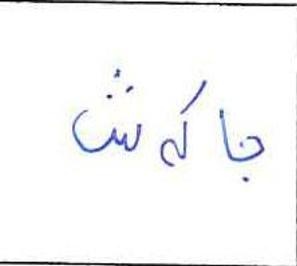 جاکەش